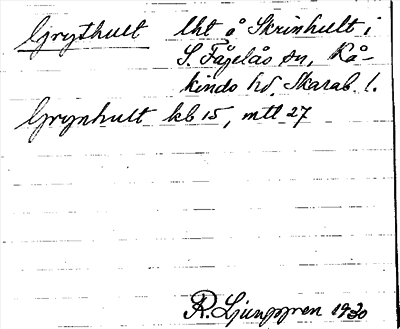 Grythult lht å Skrinhult i
S. Fågelås sn, Kå-
kinds hd, Skarab. l.
Grynhult kb 15, mtl 27
R. Ljunggren 1920